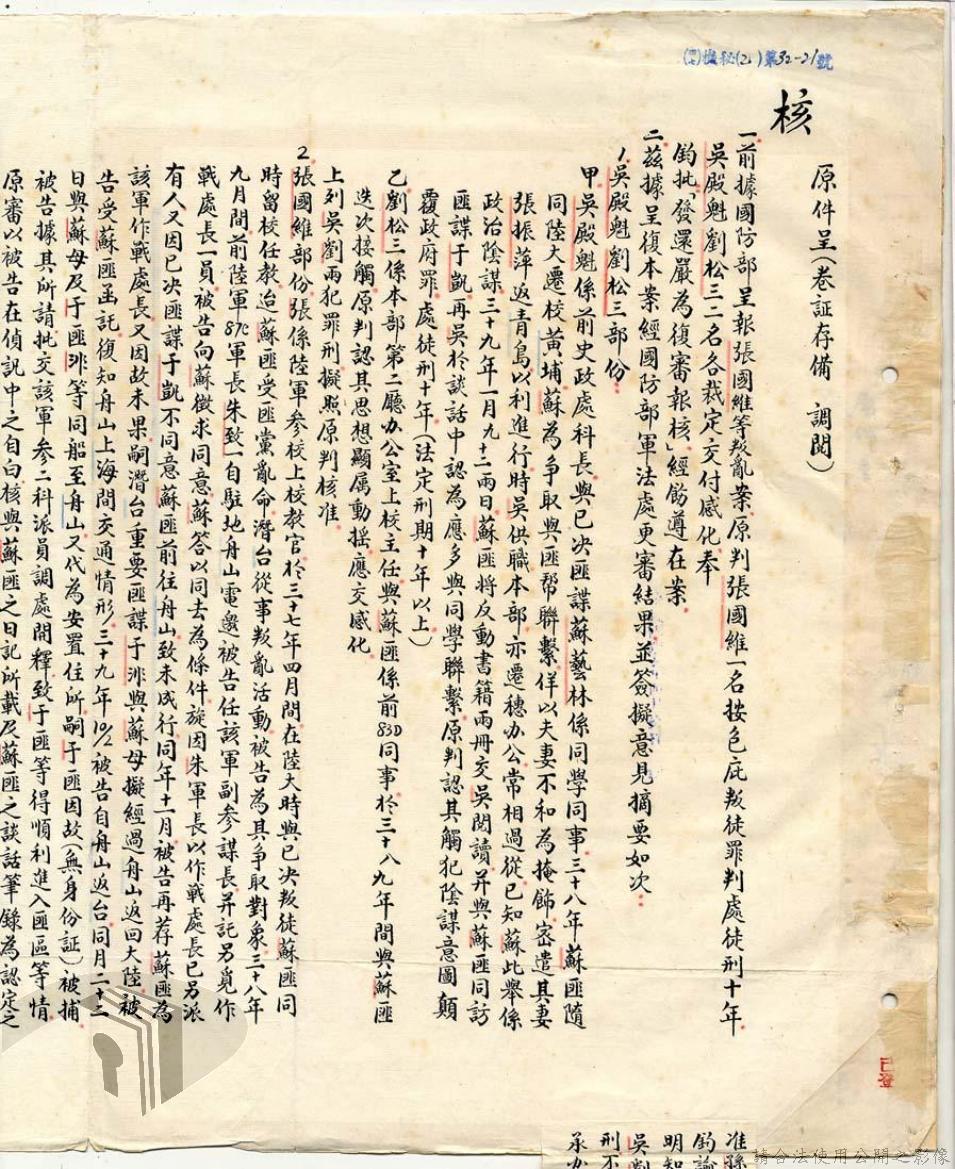 (四)機秘(乙)第32-21號
核
原件呈(卷証存備 調閱)
一前據國防部呈報張國維等叛亂案原判張國維一名按包庇叛徒罪判處徒刑十年
吳殿魁劉松三二名各裁定交付感化奉
鈞批「發還嚴為復審報核」經飭遵在案
二茲據呈復本案經國防部軍法處更審結果並簽擬意見摘要如次：
1吳殿魁劉松三部份：
甲吳殿魁係前史政處科長與已决匪諜蘇藝林係同學同事三十八年蘇匪隨
同陸大遷校黃埔蘇為爭取與匪幫聯繫佯以夫妻不和為掩飾密遣其妻
張振萍返青島以利進行時吳供職本部亦遷穗办公常相過從已知蘇此舉係
政治陰謀三十九年一月九、十二兩日蘇匪將反動書籍兩冊交吳閱讀并與蘇匪同訪
匪諜于凱再吳於談話中認為應多與同學聯繫原判認其觸犯陰謀意圖顛
覆政府罪處徒刑十年(法定刑期十年以上)
乙劉松三係本部第二廳办公室上校主任與蘇匪係前83D同事於三十八九年間與蘇匪
迭次接觸原判認其思想顯属動搖應交感化
上列吳劉兩犯罪刑擬照原判核准
2張國維部份張係陸軍參校上校教官於三十七年四月間在陸大時與已决叛徒蘇匪同
時留校任教迨蘇匪受匪黨亂命潛台從事叛亂活動被告為其爭取對象三十八年
九月間前陸軍87C軍長朱致一自駐地舟山電邀被告任該軍副參謀長并託另覓作
戰處長一員被告向蘇徵求同意蘇答以同去為條件旋因朱軍長以作戰處長已另派
有人又因已决匪諜于凱不同意蘇匪前往舟山致未成行同年十一月被告再荐蘇匪為
該軍作戰處長又因故未果嗣潛台重要匪諜于非與蘇母擬經過舟山返回大陸被
告受蘇匪函託復知舟山上海間交通情形三十九年10/2被告自舟山返台同月二十二
日與蘇母及于匪非等同船至舟山又代為安置住所嗣于匪因故(無身份証)被捕
被告據其所請批交該軍參二科派員調處開釋致于匪等得順利進入匪區等情
原審以被告在偵訊中之自白核與蘇匪之日記所載及蘇匪之談話筆錄為認定之
已登
准
鈞諭
明知
吳劉
刑不
承办
請合法使用公開之影像